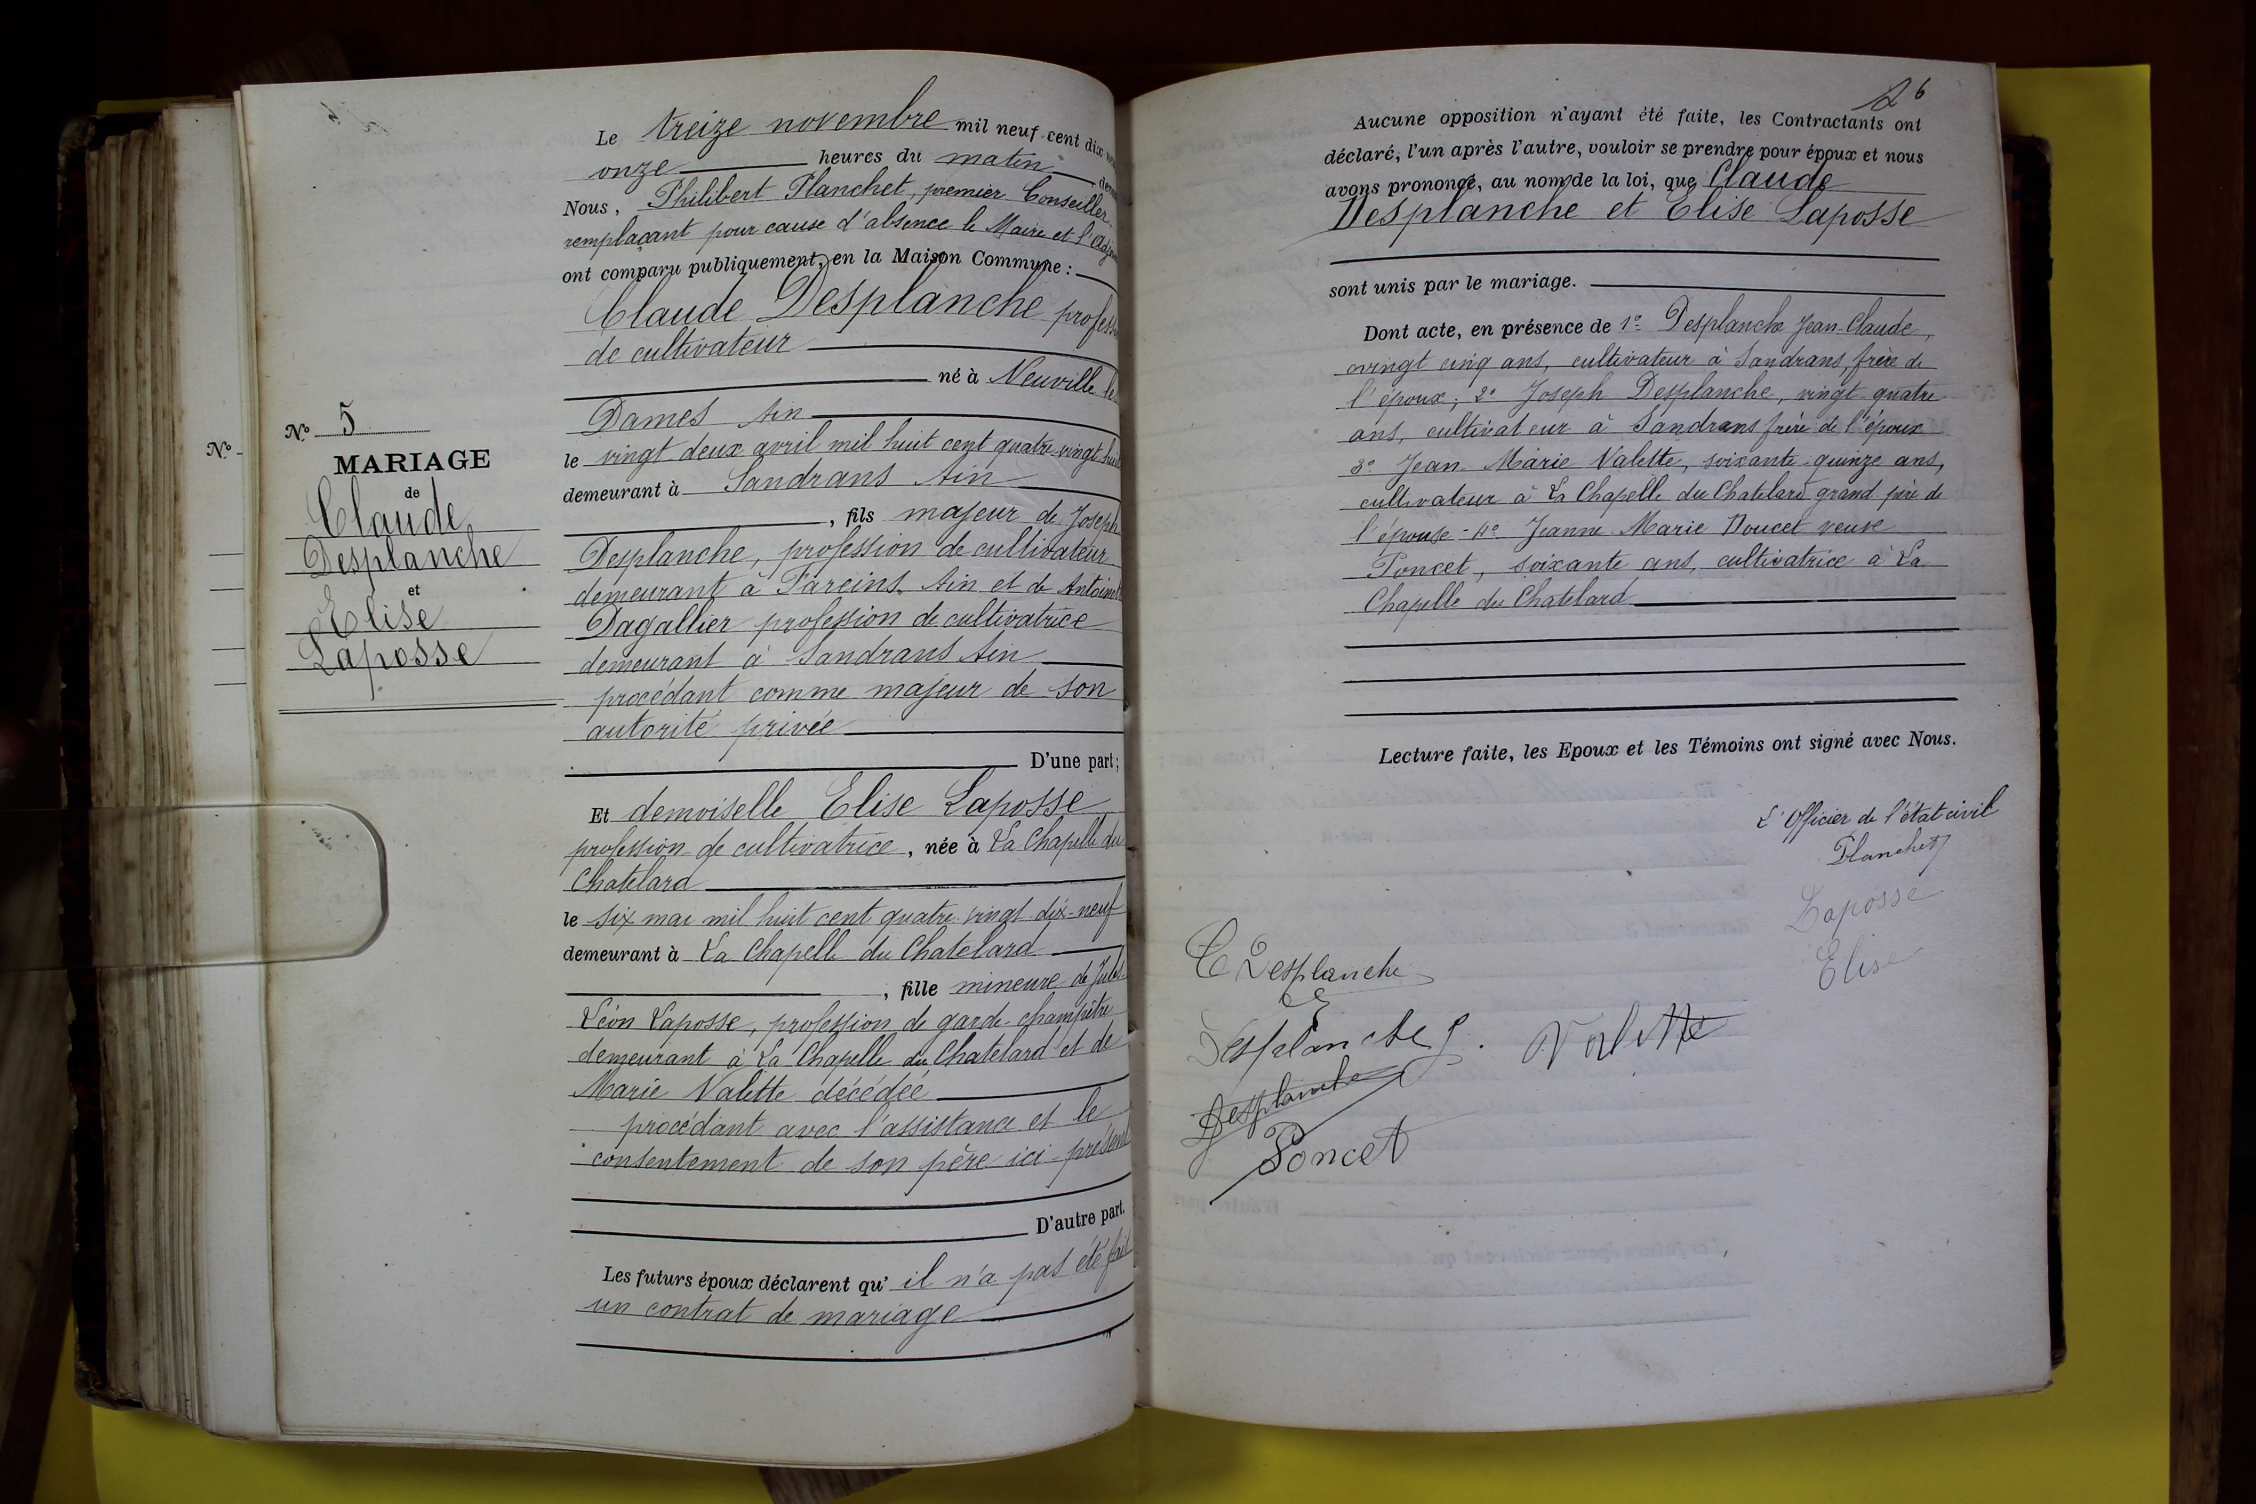 Le treize novembre mil neuf cent dix
onze heures du matin
Nous, Philibert Planchet, premier Conseiller
remplaçant pour cause d'absence le Maire et l'
ont comparu publiquement, en la Maison Commune :
Claude Desplanche
de cultivateur
né à Neuville les
Dames Ain
le vingt deux avril mil huit cent quatre-vingt huit
demeurant à Sandrans Ain
, fils majeur de Joseph
Desplanche, profession de cultivateur
demeurant à Fareins Ain et de Antoinette
Dagallier profession de cultivatrice
demeurant à Sandrans Ain
procédant comme majeur de son
autorité privée
D'une part;
Et demoiselle Elise Laposse
profession de cultivatrice, née à La Chapelle du
Chatelard
le six mai mil huit cent quatre-vingt-dix-neuf
demeurant à La Chapelle du Chatelard
, fille mineure de Jules
Léon Laposse, profession de garde-champêtre
demeurant à La Chapelle du Chatelard et de
Marie Valette décédée
procédant avec l'assistance et le
consentement de son père ici-présent
D'autre part.
Les futurs époux déclarent qu'il n'a pas été fait
un contrat de mariage
N° 5
MARIAGE
de
Claude
Desplanche
et
Elise
Laposse
N°
6
Aucune opposition n'ayant été faite, les Contractants ont
déclaré, l'un après l'autre, vouloir se prendre pour époux et nous
avons prononcé, au nom de la loi, que Claude
Desplanche et Elise Laposse
sont unis par le mariage.
Dont acte, en présence de 1° Desplanche Jean-Claude,
vingt cinq ans, cultivateur à Sandrans, frère de
l'époux; 2° Joseph Desplanche, vingt-quatre
ans, cultivateur à Sandrans frère de l'époux
3° Jean-Marie Valette, soixante-quinze ans,
cultivateur à La Chapelle du Chatelard grand père de
l'épouse - 4° Jeanne Marie Doucet veuve
Poncet, soixante ans, cultivatrice à La
Chapelle du Chatelard
Lecture faite, les Epoux et les Témoins ont signé avec Nous.
L'Officier de l'état civil
Planchet
Laposse
Elise
C Desplanche
Desplanche J. Valette
Desplanche
Poncet